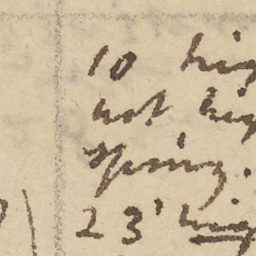 10 hig
not hig
spring.
23' hig